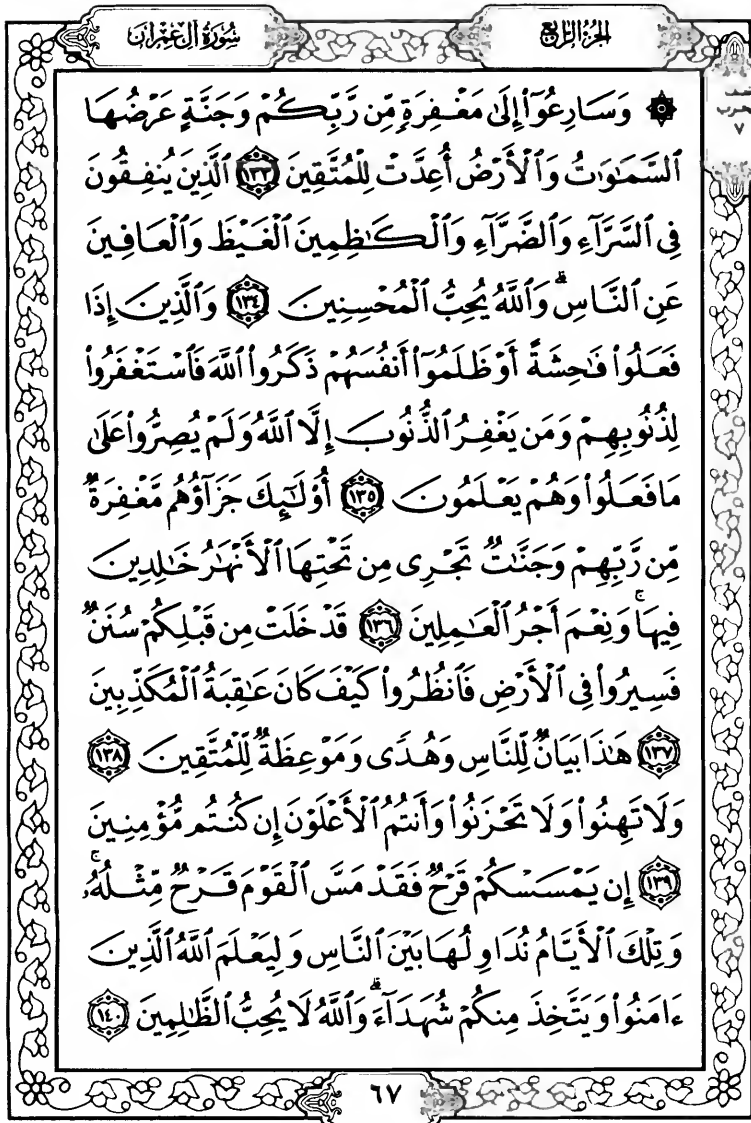 سُورَةُ آلِ عِمْرَان
الجُزْءُ الرَّابِعُ
۞ وَسَارِعُوٓاْ إِلَىٰ مَغْفِرَةٖ مِّن رَّبِّكُمْ وَجَنَّةٍ عَرْضُهَا
ٱلسَّمَٰوَٰتُ وَٱلْأَرْضُ أُعِدَّتْ لِلْمُتَّقِينَ ١٣٣ ٱلَّذِينَ يُنفِقُونَ
فِي ٱلسَّرَّآءِ وَٱلضَّرَّآءِ وَٱلْكَٰظِمِينَ ٱلْغَيْظَ وَٱلْعَافِينَ
عَنِ ٱلنَّاسِۗ وَٱللَّهُ يُحِبُّ ٱلْمُحْسِنِينَ ١٣٤ وَٱلَّذِينَ إِذَا
فَعَلُواْ فَٰحِشَةً أَوْ ظَلَمُوٓاْ أَنفُسَهُمْ ذَكَرُواْ ٱللَّهَ فَٱسْتَغْفَرُواْ
لِذُنُوبِهِمْ وَمَن يَغْفِرُ ٱلذُّنُوبَ إِلَّا ٱللَّهُ وَلَمْ يُصِرُّواْ عَلَىٰ
مَا فَعَلُواْ وَهُمْ يَعْلَمُونَ ١٣٥ أُوْلَٰٓئِكَ جَزَآؤُهُم مَّغْفِرَةٌ
مِّن رَّبِّهِمْ وَجَنَّٰتٌ تَجْرِي مِن تَحْتِهَا ٱلْأَنْهَٰرُ خَٰلِدِينَ
فِيهَاۚ وَنِعْمَ أَجْرُ ٱلْعَٰمِلِينَ ١٣٦ قَدْ خَلَتْ مِن قَبْلِكُمْ سُنَنٌ
فَسِيرُواْ فِي ٱلْأَرْضِ فَٱنظُرُواْ كَيْفَ كَانَ عَٰقِبَةُ ٱلْمُكَذِّبِينَ
١٣٧ هَٰذَا بَيَانٌ لِّلنَّاسِ وَهُدًى وَمَوْعِظَةٌ لِّلْمُتَّقِينَ ١٣٨
وَلَا تَهِنُواْ وَلَا تَحْزَنُواْ وَأَنتُمُ ٱلْأَعْلَوْنَ إِن كُنتُم مُّؤْمِنِينَ
١٣٩ إِن يَمْسَسْكُمْ قَرْحٌ فَقَدْ مَسَّ ٱلْقَوْمَ قَرْحٌ مِّثْلُهُۥۚ
وَتِلْكَ ٱلْأَيَّامُ نُدَاوِلُهَا بَيْنَ ٱلنَّاسِ وَلِيَعْلَمَ ٱللَّهُ ٱلَّذِينَ
ءَامَنُواْ وَيَتَّخِذَ مِنكُمْ شُهَدَآءَۗ وَٱللَّهُ لَا يُحِبُّ ٱلظَّٰلِمِينَ ١٤٠
٦٧